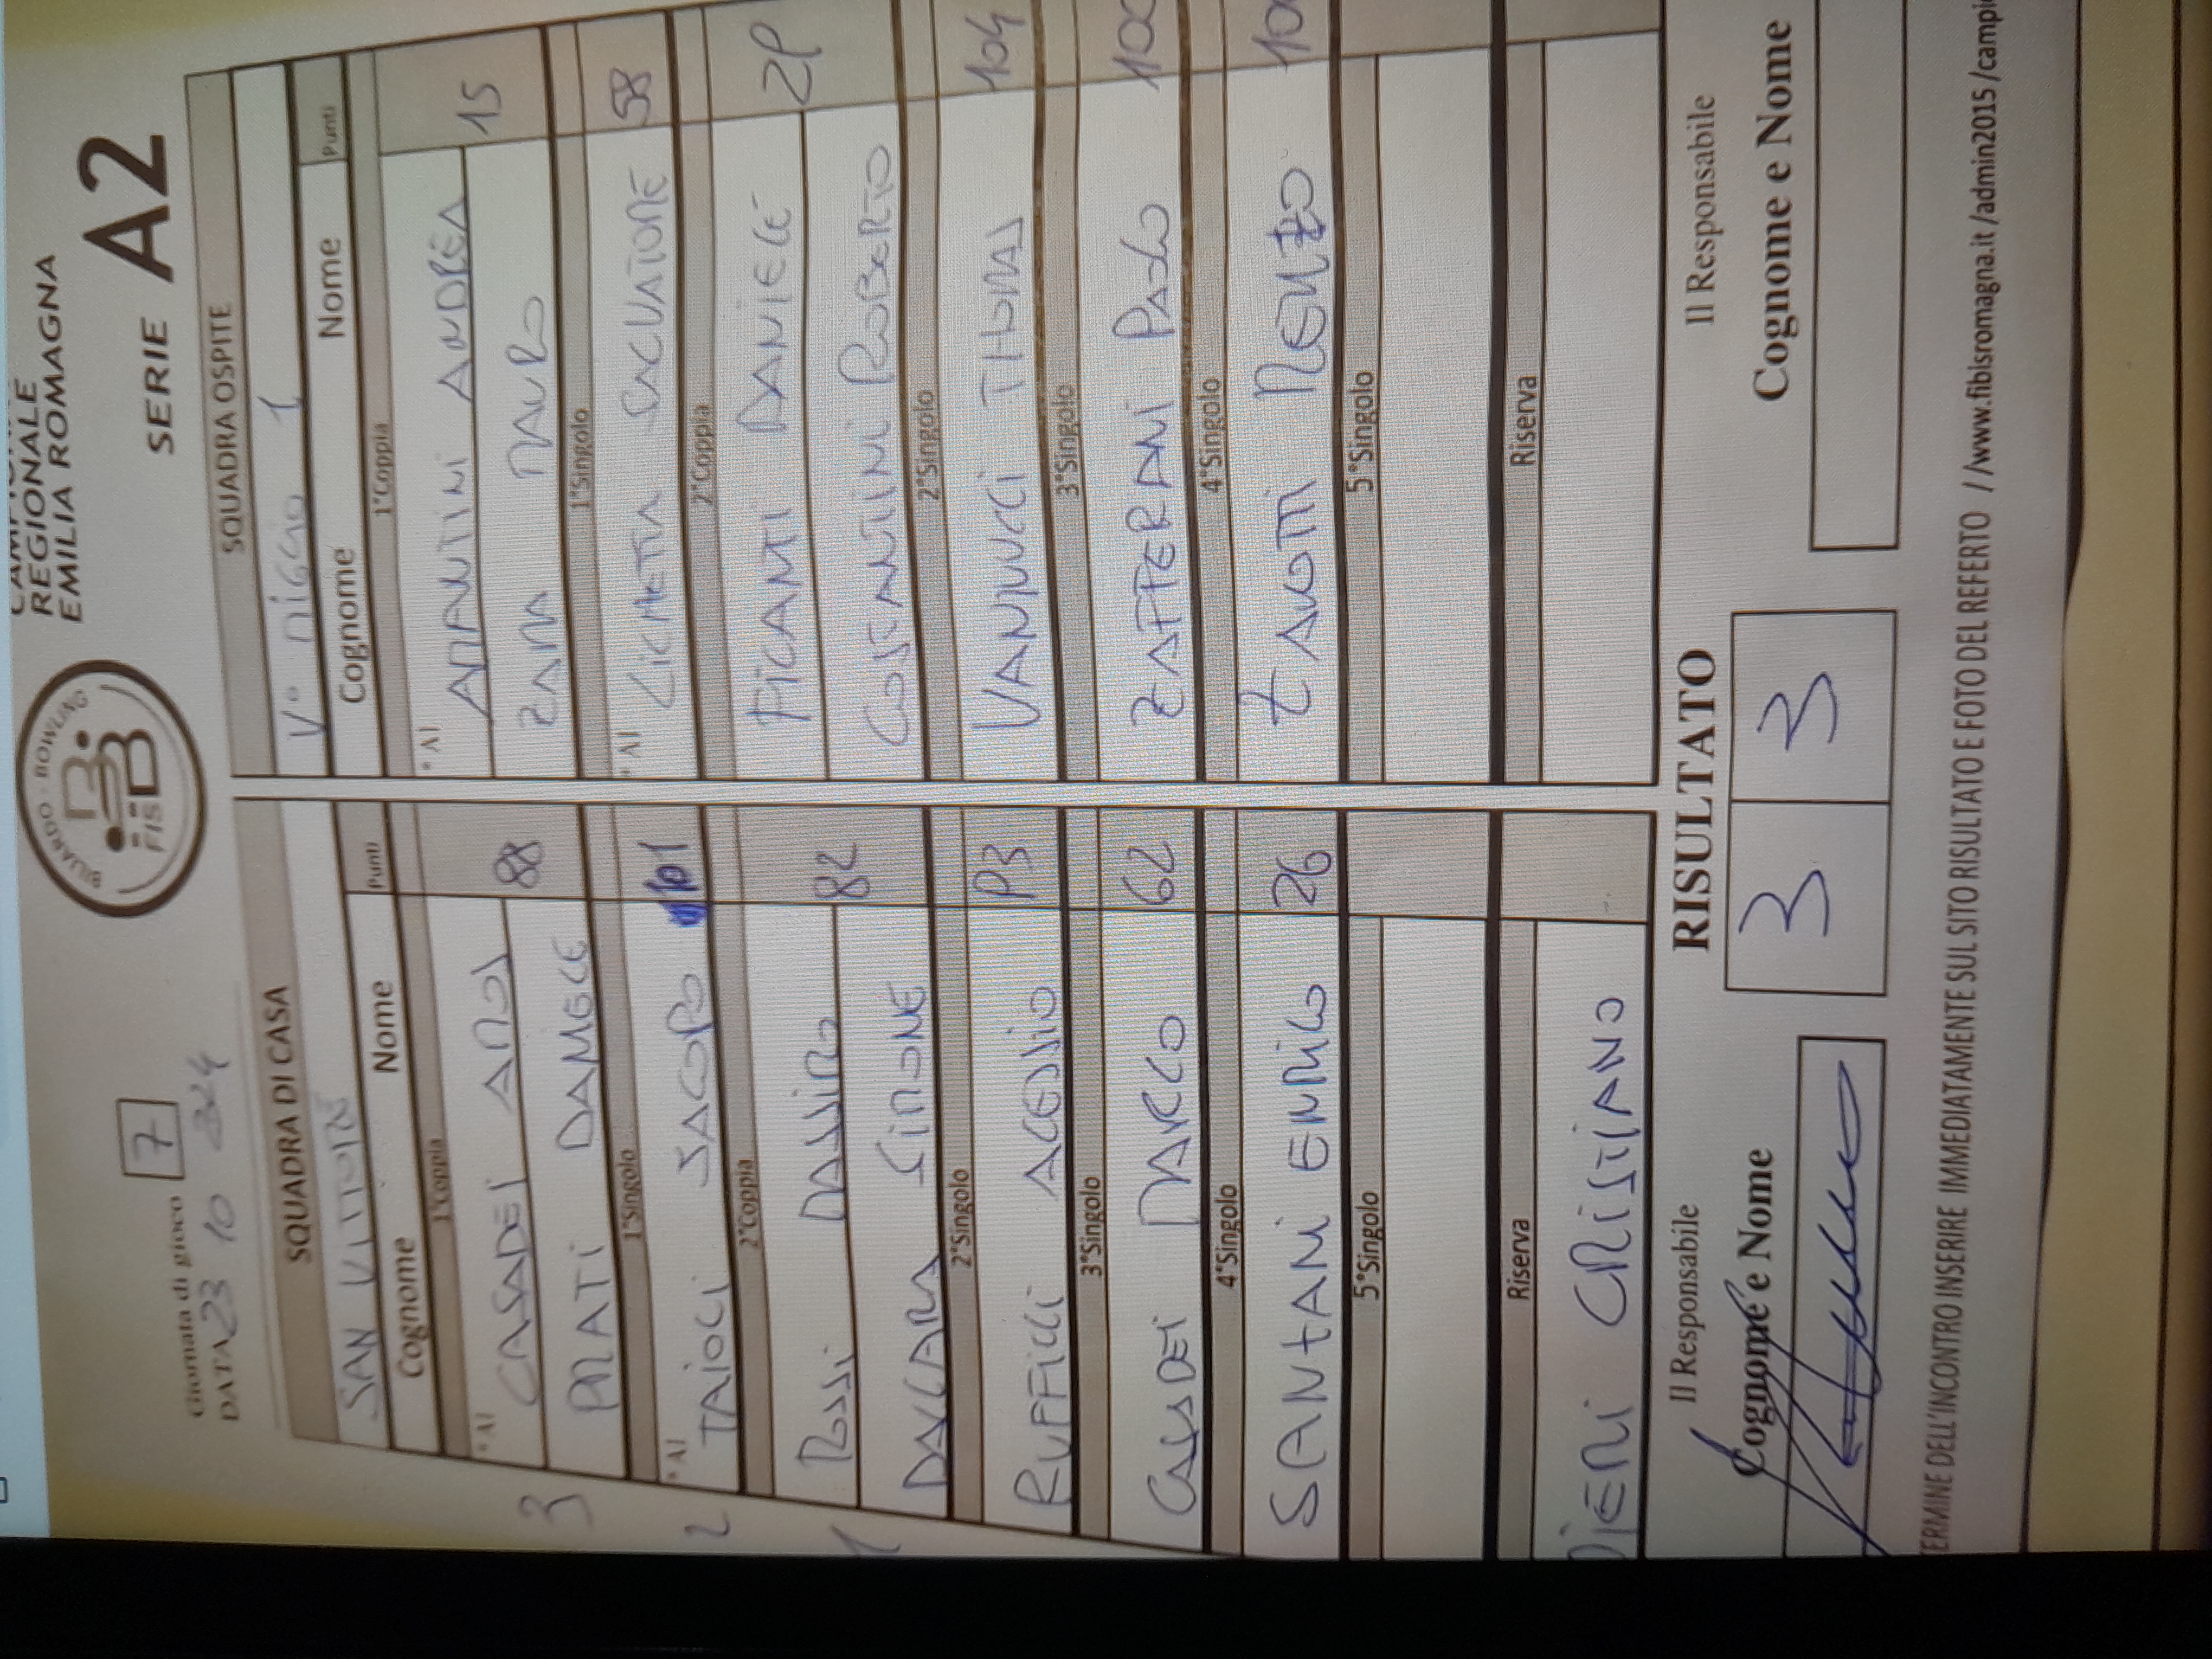 REGIONALE
EMILIA ROMAGNA
BILIARDO - BOWLING
FISBB
SERIE A2
Giornata di gioco 7
DATA 23 10
SQUADRA DI CASA
SAN VITTORE
Cognome Nome Punti
1°Coppia
* A1
CASADEI AMOS 88
PRATI DANIELE
1°Singolo
* A1
TAIOLI JACOPO 101
2°Coppia
ROSSI MASSIMO 82
SIMONE
2°Singolo
RUFFILLI ALESSIO 93
3°Singolo
CASADEI MARCO 62
4°Singolo
SANTANI ENRICO 26
5°Singolo
Riserva
CRISTIANO
3
2
1
SQUADRA OSPITE
1
Cognome Nome Punti
1°Coppia
* A1
AMANTINI ANDREA 15
ZAMA MAURO
1°Singolo
* A1
LICHETTA SALVATORE 58
2°Coppia
FICANTI DANIELE 29
COSTANTINI ROBERTO
2°Singolo
VANNUCCI THOMAS 104
3°Singolo
ZAFFERANI PAOLO 100
4°Singolo
RENZO
5°Singolo
Riserva
RISULTATO
3 3
Il Responsabile
Cognome e Nome
Il Responsabile
Cognome e Nome
TERMINE DELL'INCONTRO INSERIRE IMMEDIATAMENTE SUL SITO RISULTATO E FOTO DEL REFERTO //www.fibisromagna.it /admin2015 /campi